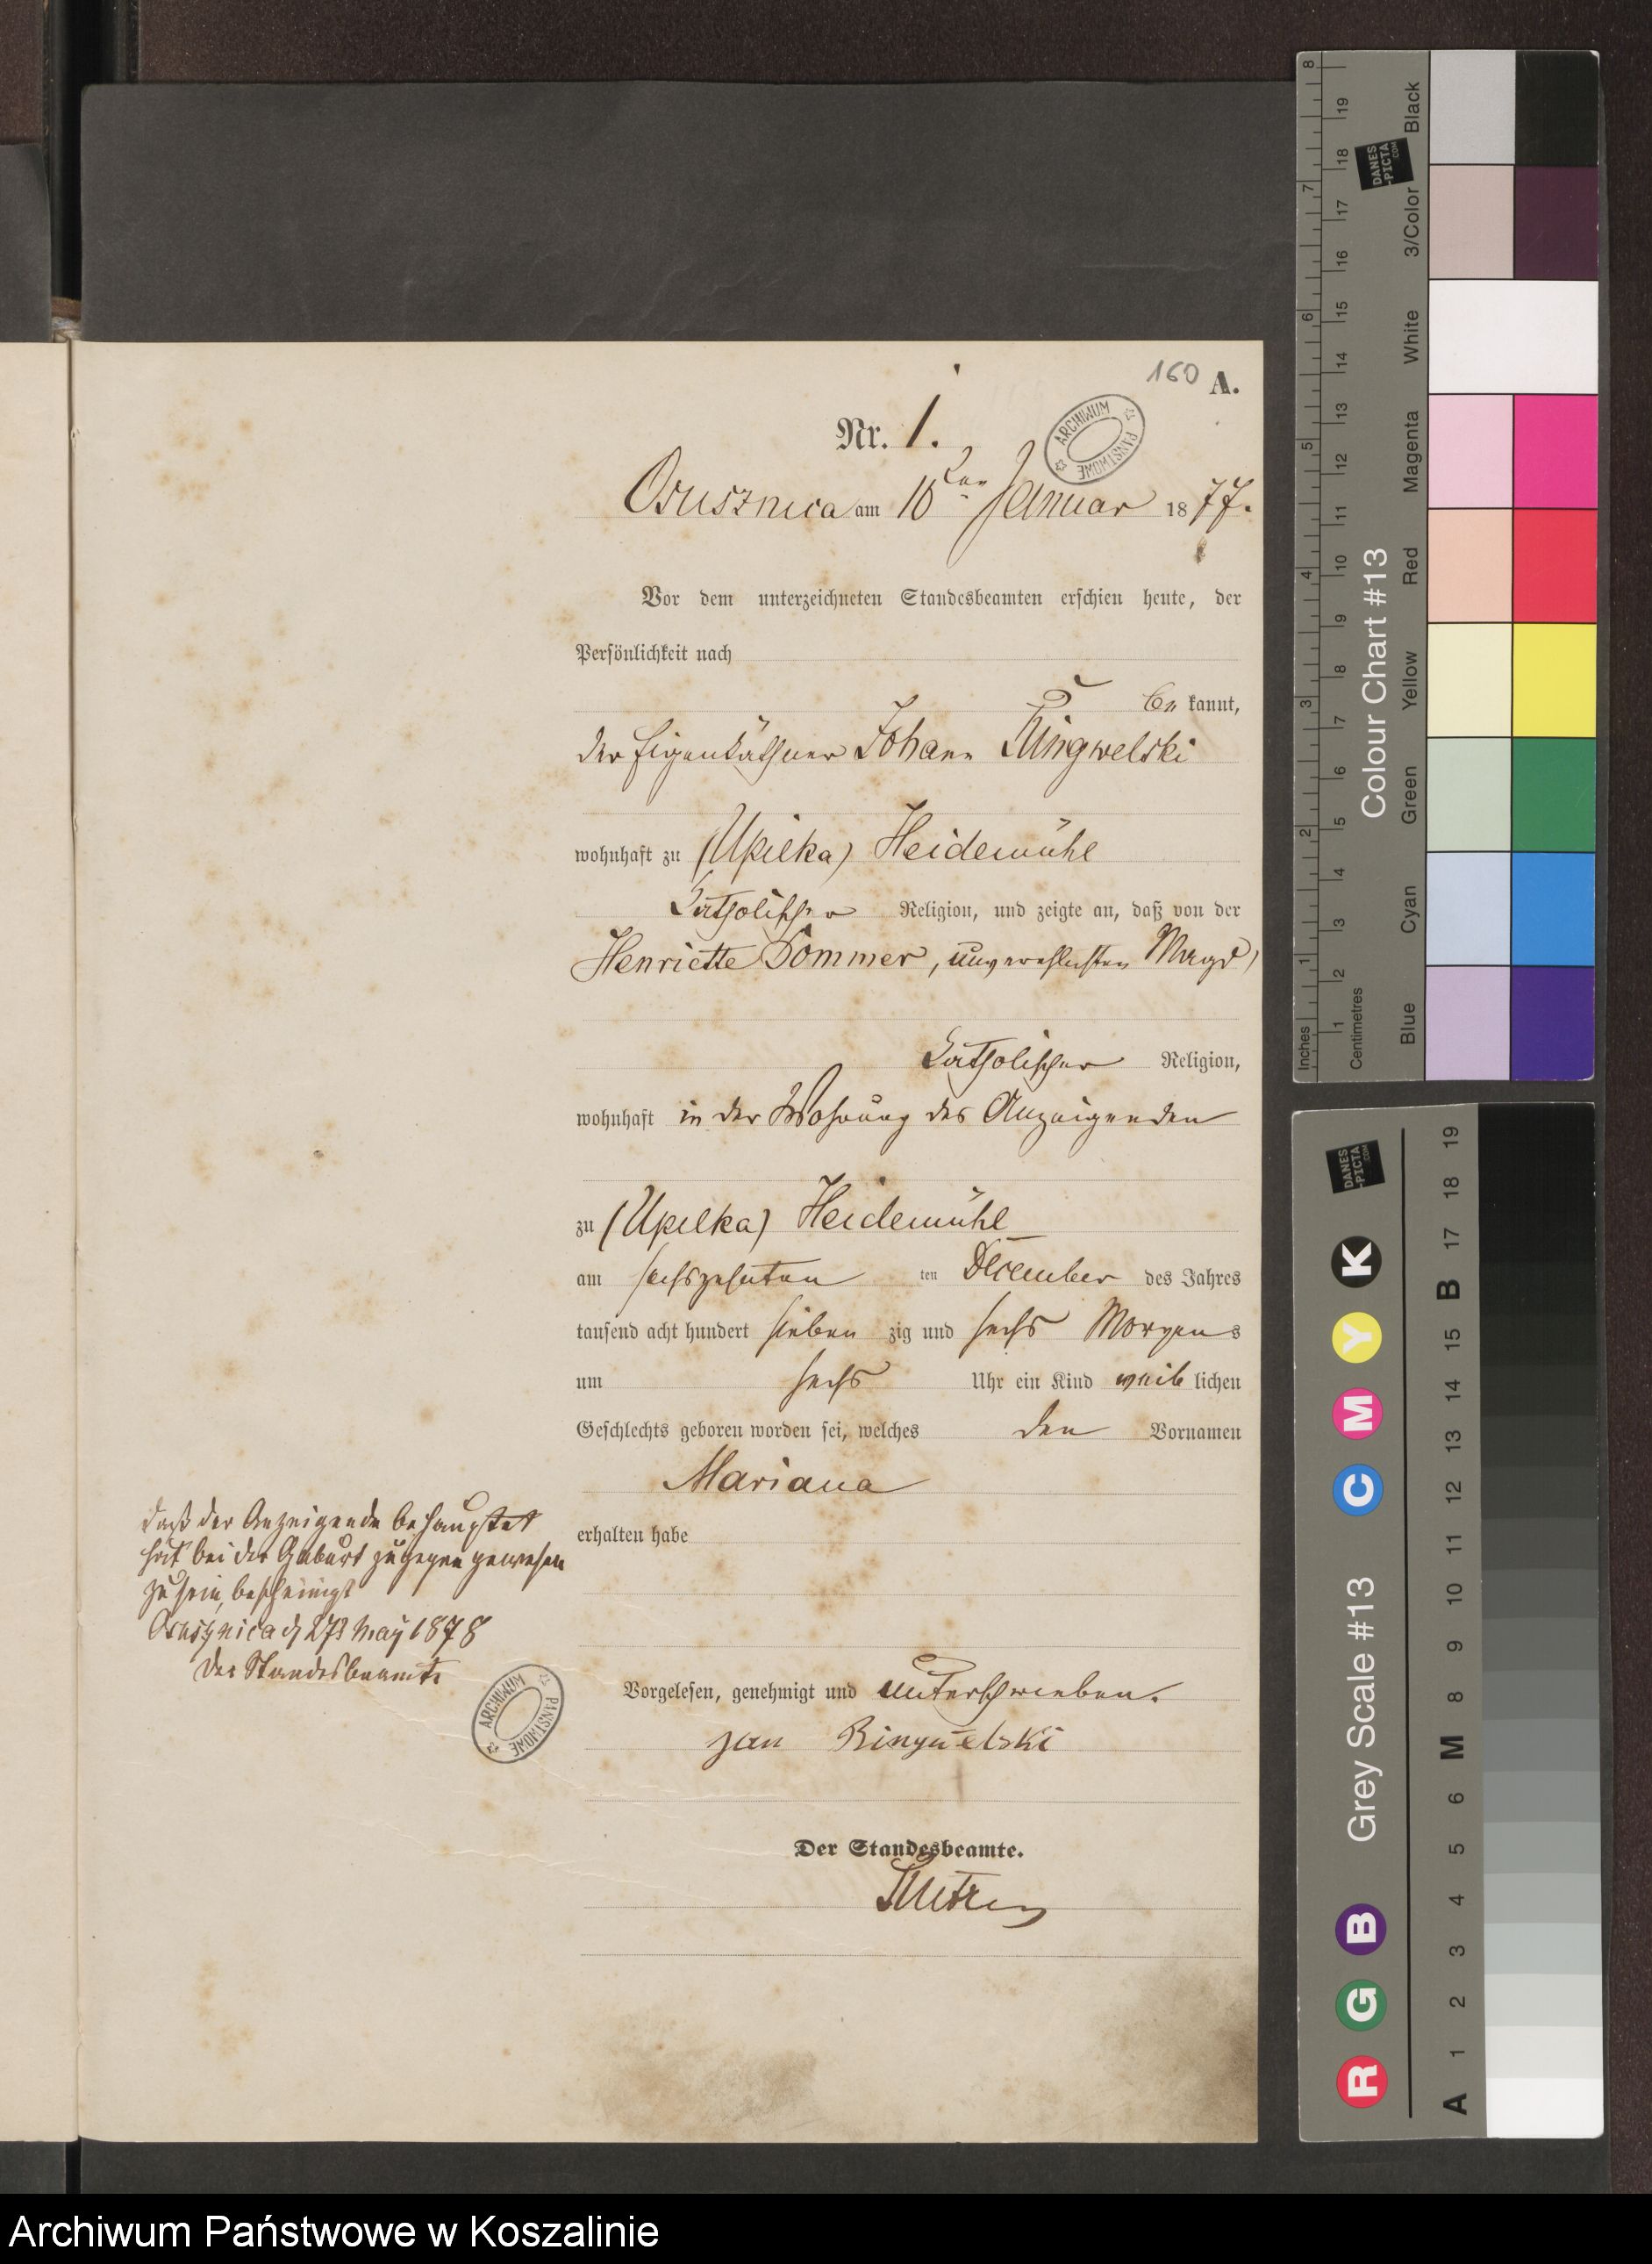 160 A.
Nr. 1.
ARCHIWUM PAŃSTWOWE
Osusznica am 10ten Januar 1877.
Vor dem unterzeichneten Standesbeamten erschien heute, der
Persönlichkeit nach
be kannt,
der Eigenkäthner Johann Ringwelski
wohnhaft zu (Upilka) Heidemühl
katholischer Religion, und zeigte an, daß von der
Henriette Sommer, unverehelichten Magd,
katholischer Religion,
wohnhaft in der Wohnung des Anzeigenden
zu (Upilka) Heidemühl
am sechszehnten ten December des Jahres
tausend acht hundert sieben zig und sechs Morgens
um sechs Uhr ein Kind weib lichen
Geschlechts geboren worden sei, welches den Vornamen
Mariana
erhalten habe
daß der Anzeigende behauptet
hat bei der Geburt zugegen gewesen
zu sein, bescheinigt
Osusznica d 27t May 1878
Der Standesbeamte
ARCHIWUM PAŃSTWOWE
Vorgelesen, genehmigt und unterschrieben.
Jan Ringwelski
Der Standesbeamte.
Inches 1 2 3 4 5 6 7 8
Centimetres 1 2 3 4 5 6 7 8 9 10 11 12 13 14 15 16 17 18 19
Colour Chart #13
Blue Cyan Green Yellow Red Magenta White 3/Color Black
DANES-PICTA.COM
Grey Scale #13
R G B C M Y K
DANES-PICTA.COM
A 1 2 3 4 5 6 M 8 9 10 11 12 13 14 15 B 17 18 19
Archiwum Państwowe w Koszalinie